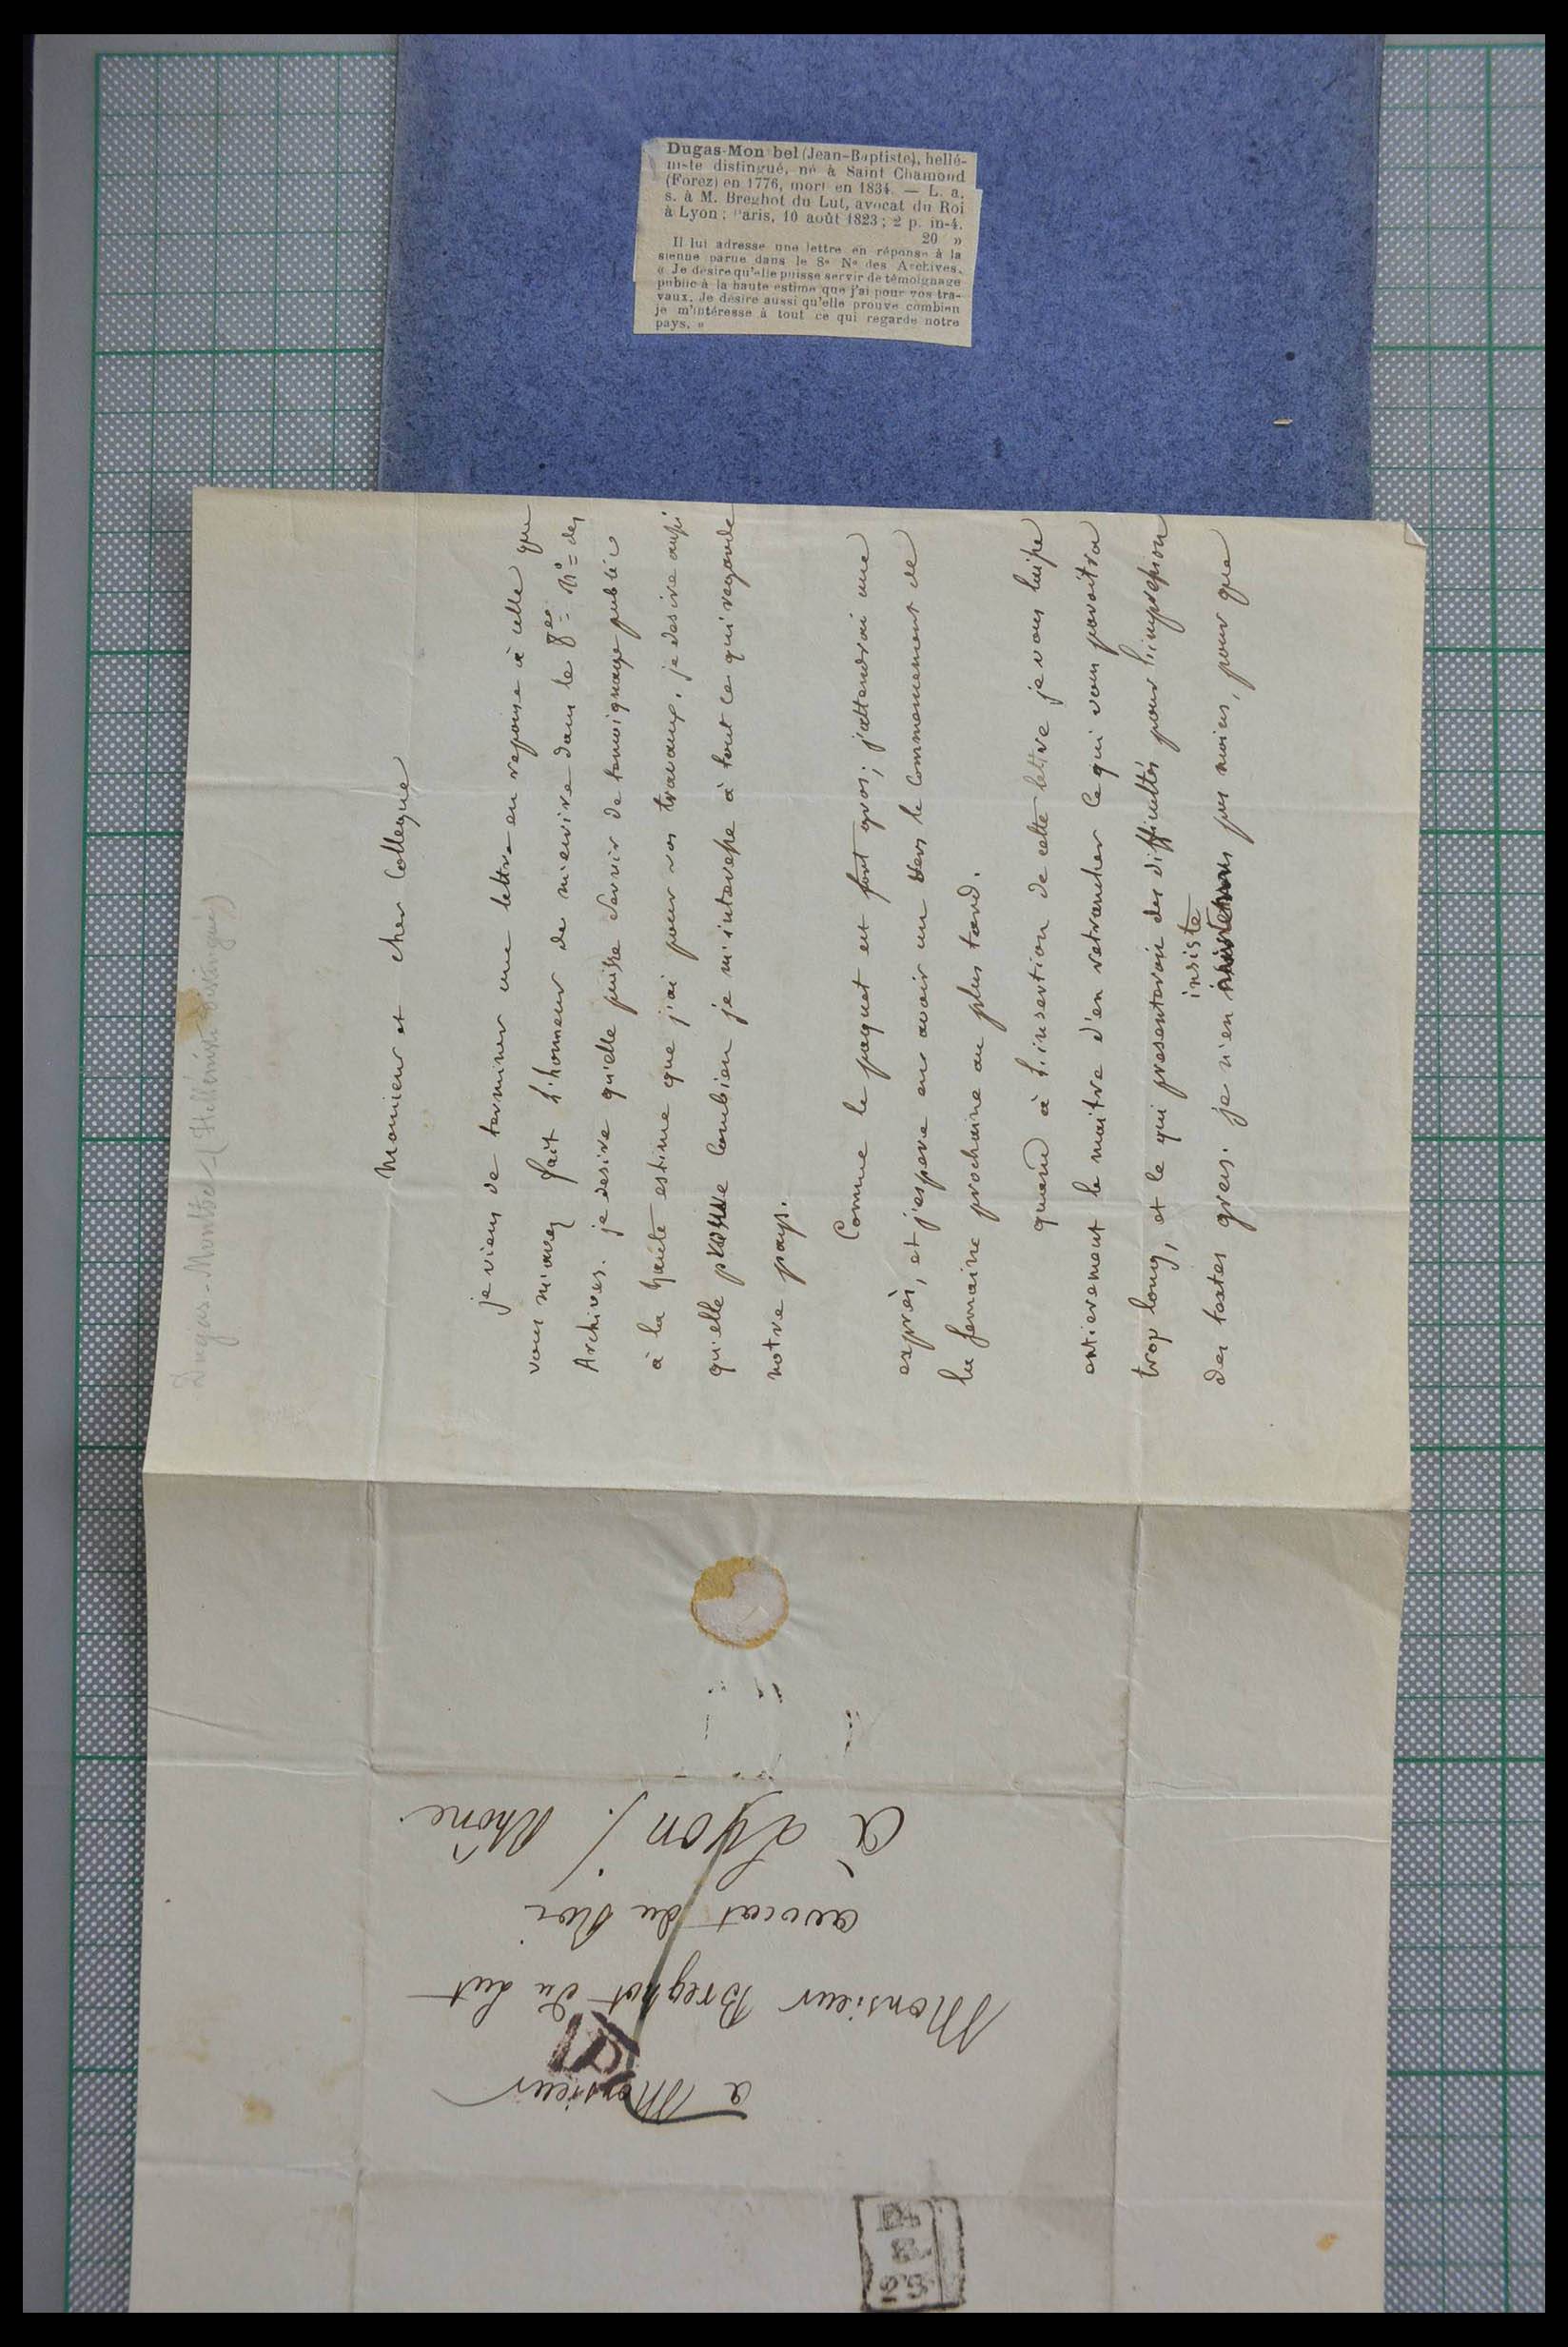 Dugas-Mon bel (Jean-Baptiste), hellé-
niste distingué, né à Saint Chamond
(Forez) en 1776, mort en 1834. — L. a.
s. à M. Breghot du Lut, avocat du Roi
à Lyon; Paris, 10 août 1823; 2 p. in-4.
20 »
Il lui adresse une lettre en réponse à la
sienne parue dans le 8e No des Archives.
« Je désire qu'elle puisse servir de témoignage
public à la haute estime que j'ai pour vos tra-
vaux. Je désire aussi qu'elle prouve combien
je m'intéresse à tout ce qui regarde notre
pays. »
Dugas-Montbel (Helléniste distingué)
Monsieur et cher Collegue
je viens de terminer une lettre en reponse à celle que
vous m'avez fait l'honneur de m'ecrire dans le 8eme No des
Archives. je desire qu'elle puisse servir de temoignage public
à la haute estime que j'ai pour vos travaux, je desire aussi
qu'elle prouve combien je m'interesse à tout ce qui regarde
notre pays.
Comme le paquet est fort gros, j'attendrai une
exprès, et j'espere en avoir un vers le commencement de
la semaine prochaine au plus tard.
quand à l'insertion de cette lettre je vous laisse
entierement le maitre d'en retrancher ce qui vous paroitra
trop long, et le qui presenteroit des difficultés pour l'impression
des textes grecs. je n'en insiste pas moins, pour que
a Monsieur
Monsieur Breghot du Lut
avocat du Roi
à Lyon /. Rhône.
P
23